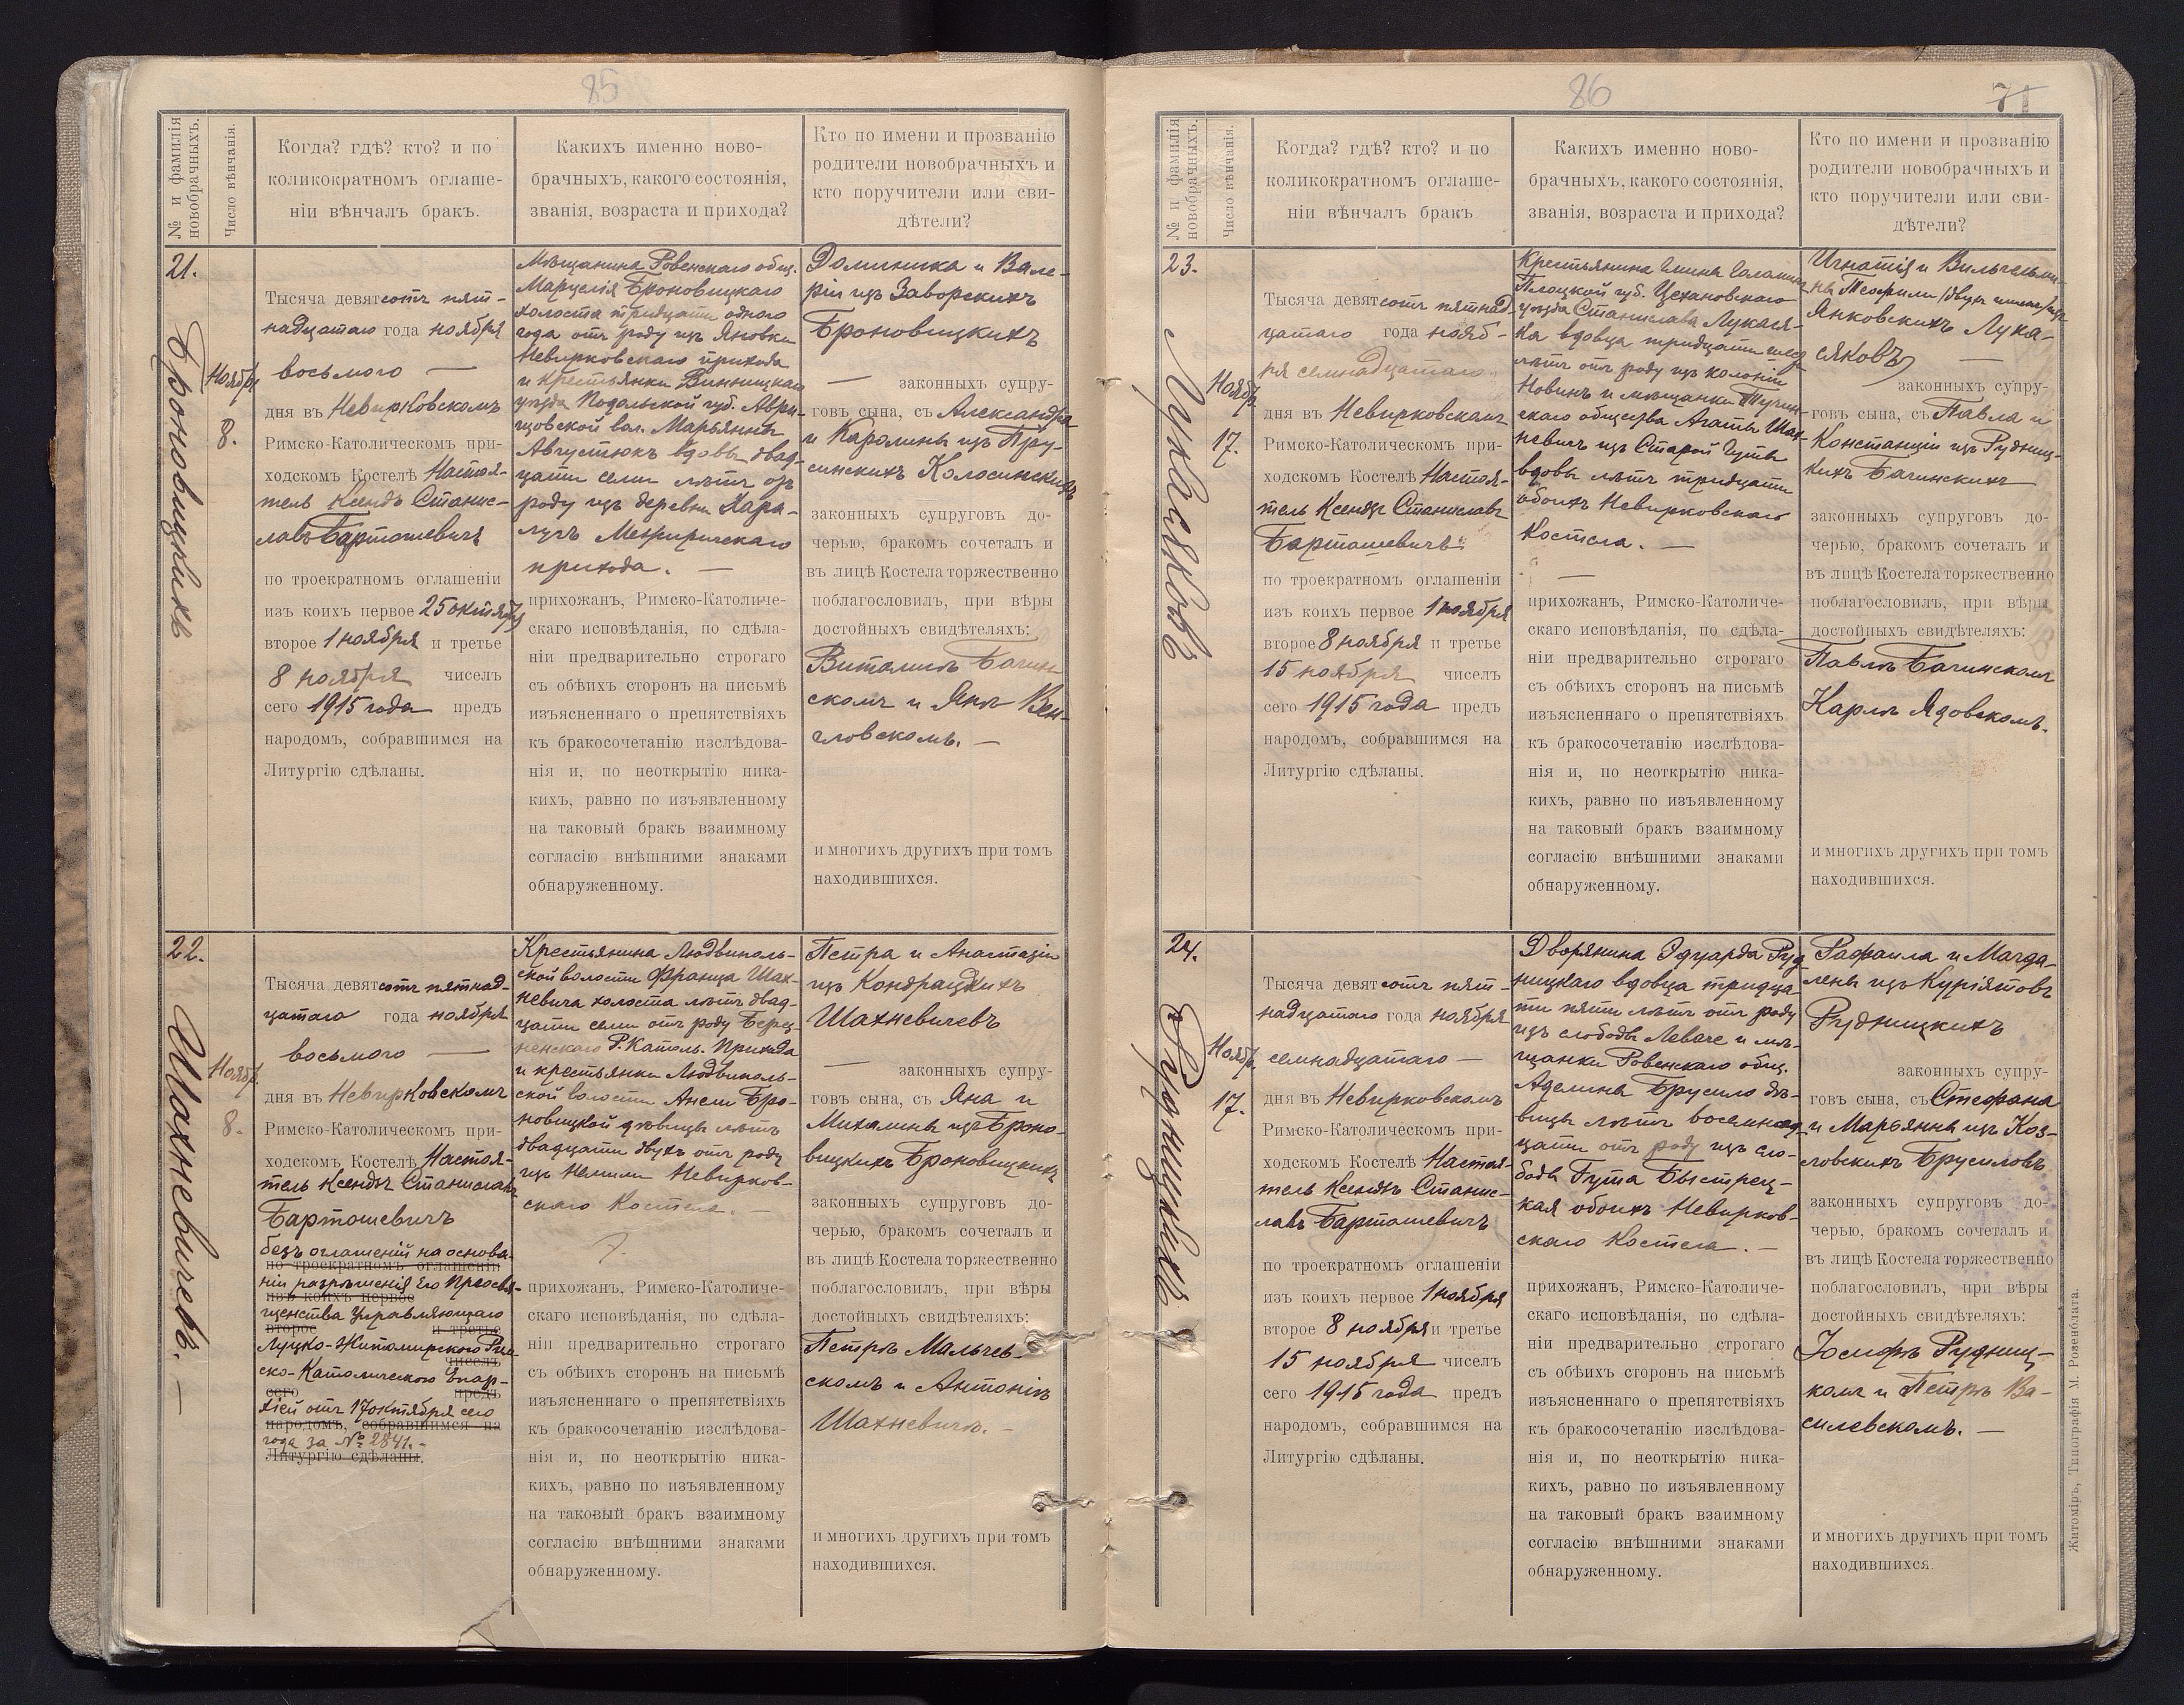 85
№ и фамилія новобрачныхъ.
Число вѣнчанія.
Когда? гдѣ? кто? и по
коликократномъ оглаше-
ніи вѣнчалъ бракъ.
Какихъ именно ново-
брачныхъ, какого состоянія,
званія, возраста и прихода?
Кто по имени и прозванію
родители новобрачныхъ и
кто поручители или сви-
дѣтели?
21.
Броновицкихъ
Ноябр.
8.
Тысяча девятсотъ пят-
надцатаго года ноября
восьмого —
дня въ Невирковскомъ
Римско-Католическомъ при-
ходскомъ Костелѣ Настоя-
тель Ксендзъ Станис-
лавъ Бартошевичъ
по троекратномъ оглашеніи
изъ коихъ первое 25 октября
второе 1 ноября и третье
8 ноября чиселъ
сего 1915 года предъ
народомъ, собравшимся на
Литургію сдѣланы.
Мѣщанина Ровенскаго общ.
Марцелія Броновицкаго
холоста тридцати одного
года отъ роду изъ Яновки
Невирковскаго прихода
и крестьянки Винницкаго
уѣзда Подольской губ.
вол. Марьянны
Августюкъ вдовы двад-
цати семи лѣтъ отъ
роду изъ деревни Хара-
лугъ Межиричскаго
прихода. —
прихожанъ, Римско-Католиче-
скаго исповѣданія, по сдѣла-
ніи предварительно строгаго
съ обѣихъ сторонъ на письмѣ
изъясненнаго о препятствіяхъ
къ бракосочетанію изслѣдова-
нія и, по неоткрытію ника-
кихъ, равно по изъявленному
на таковый бракъ взаимному
согласію внѣшними знаками
обнаруженному.
Доминика и Вале-
ріи изъ Заворскихъ
Броновицкихъ
— законныхъ супру-
говъ сына, съ Александра
и Каролины изъ Пру-
синскихъ Колосинскихъ
законныхъ супруговъ до-
черью, бракомъ сочеталъ и
въ лицѣ Костела торжественно
поблагословилъ, при вѣры
достойныхъ свидѣтеляхъ:
Виталисъ Бачин-
скомъ и Янъ Вен-
гловскомъ. —
и многихъ другихъ при томъ
находившихся.
22.
Шахневичевъ. —
Ноябр.
8.
Тысяча девятсотъ пятнад-
цатаго года ноября
восьмого —
дня въ Невирковскомъ
Римско-Католическомъ при-
ходскомъ Костелѣ Настоя-
тель Ксендзъ Станиславъ
Бартошевичъ
безъ оглашеній на основа-
по троекратномъ оглашеніи
ніи разрѣшенія Его Преосвя-
изъ коихъ первое
щенства Управляющаго
второе и третье
Луцко-Житомирскою Рим-
чиселъ
ско-Католическою Епар-
сего предъ
хіей отъ 17 октября сего
народомъ, собравшимся на
года за № 2841. -
Литургію сдѣланы.
Крестьянина Людвиполь-
ской волости Франца Шах-
невича холоста лѣтъ двад-
цати семи отъ роду Берез-
ненскаго Р. Католь. Прихода
и крестьянки Людвиполь-
ской волости Анели Бро-
новицкой дѣвицы лѣтъ
двадцати двухъ отъ роду
изъ Невирков-
скаго Костела. —
прихожанъ, Римско-Католиче-
скаго исповѣданія, по сдѣла-
ніи предварительно строгаго
съ обѣихъ сторонъ на письмѣ
изъясненнаго о препятствіяхъ
къ бракосочетанію изслѣдова-
нія и, по неоткрытію ника-
кихъ, равно по изъявленному
на таковый бракъ взаимному
согласію внѣшними знаками
обнаруженному.
Петра и Анастазіи
изъ Кондрацкихъ
Шахневичевъ
— законныхъ супру-
говъ сына, съ Яна и
Михалины изъ Броно-
вицкихъ Броновицкихъ
законныхъ супруговъ до-
черью, бракомъ сочеталъ и
въ лицѣ Костела торжественно
поблагословилъ, при вѣры
достойныхъ свидѣтеляхъ:
Петръ Мальчев-
скомъ и Антонія
Шахневичъ. —
и многихъ другихъ при томъ
находившихся.
86
71
№ и фамилія новобрачныхъ.
Число вѣнчанія.
Когда? гдѣ? кто? и по
коликократномъ оглаше-
ніи вѣнчалъ бракъ
Какихъ именно ново-
брачныхъ, какого состоянія,
званія, возраста и прихода?
Кто по имени и прозванію
родители новобрачныхъ и
кто поручители или сви-
дѣтели?
23.
Лукасяковъ
Ноябр.
17.
Тысяча девятсотъ пятнад-
цатаго года нояб-
ря семнадцатаго
дня въ Невирковскомъ
Римско-Католическомъ при-
ходскомъ Костелѣ Настоя-
тель Ксендзъ Станиславъ
Бартошевичъ
по троекратномъ оглашеніи
изъ коихъ первое 1 ноября
второе 8 ноября и третье
15 ноября чиселъ
сего 1915 года предъ
народомъ, собравшимся на
Литургію сдѣланы.
Крестьянина гмина
Плоцкой губ. Цехановскаго
уѣзда Станислава Лукася-
ка вдовца тридцати шести
лѣтъ отъ роду изъ колоніи
Новинъ и мѣщанки Тучин-
скаго общества Агаты Шах-
невичъ изъ Старой Гуты
вдовы лѣтъ тридцати
обоихъ Невирковскаго
Костела. —
—
прихожанъ, Римско-Католиче-
скаго исповѣданія, по сдѣла-
ніи предварительно строгаго
съ обѣихъ сторонъ на письмѣ
изъясненнаго о препятствіяхъ
къ бракосочетанію изслѣдова-
нія и, по неоткрытію ника-
кихъ, равно по изъявленному
на таковый бракъ взаимному
согласію внѣшними знаками
обнаруженному.
Игнатія и Вильгельми-
ны Теофили /двухъ именъ/ изъ
Янковскихъ Лука-
сяковъ —
законныхъ супру-
говъ сына, съ Павла и
Констанціи изъ Рудниц-
кихъ Бачинскихъ
законныхъ супруговъ до-
черью, бракомъ сочеталъ и
въ лицѣ Костела торжественно
поблагословилъ, при вѣры
достойныхъ свидѣтеляхъ:
Павлъ Бачинскомъ
Карлъ Ядовскомъ.
и многихъ другихъ при томъ
находившихся.
24.
Рудницкихъ
Ноябр.
17.
Тысяча девятсотъ пят-
надцатаго года ноября
семнадцатаго —
дня въ Невирковскомъ
Римско-Католическомъ при-
ходскомъ Костелѣ Настоя-
тель Ксендзъ Станис-
лавъ Бартошевичъ
по троекратномъ оглашеніи
изъ коихъ первое 1 ноября
второе 8 ноября и третье
15 ноября чиселъ
сего 1915 года предъ
народомъ, собравшимся на
Литургію сдѣланы.
Дворянина Эдуарда Руд-
ницкаго вдовца тридца-
ти пяти лѣтъ отъ роду
изъ слободы Леваче и мѣ-
щанки Ровенскаго общ.
Аделина Брусило дѣ-
вицы лѣтъ восемнад-
цати отъ роду изъ сло-
боды Гута Быстрец-
кая обоихъ Невирков-
скаго Костела. —
прихожанъ, Римско-Католиче-
скаго исповѣданія, по сдѣла-
ніи предварительно строгаго
съ обѣихъ сторонъ на письмѣ
изъясненнаго о препятствіяхъ
къ бракосочетанію изслѣдова-
нія и, по неоткрытію ника-
кихъ, равно по изъявленному
на таковый бракъ взаимному
согласію внѣшними знаками
обнаруженному.
Рафаила и Магда-
лены изъ Куріятовъ
Рудницкихъ
законныхъ супру-
говъ сына, съ Стефана
и Марьянны изъ Коз-
ловскихъ Брусиловъ
законныхъ супруговъ до-
черью, бракомъ сочеталъ и
въ лицѣ Костела торжественно
поблагословилъ, при вѣры
достойныхъ свидѣтеляхъ:
Іосифъ Рудниц-
комъ и Петръ Ва-
силевскомъ. —
и многихъ другихъ при томъ
находившихся.
Житоміръ, Типографія М. Розенблата.